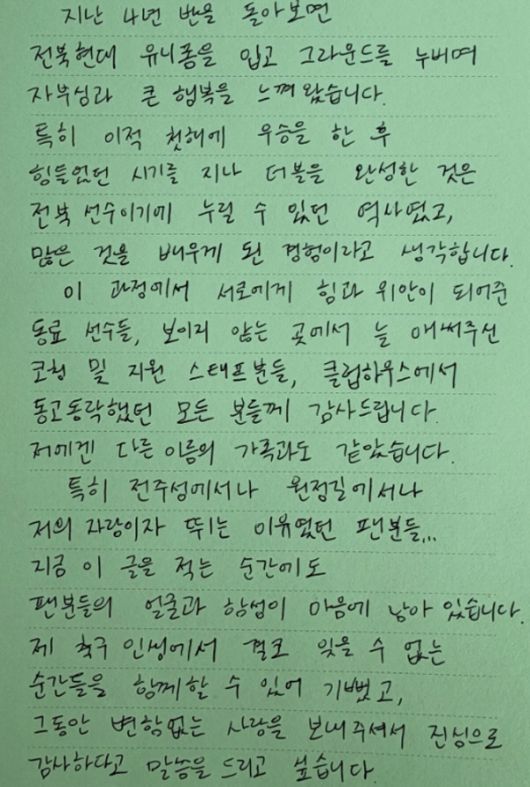 지난 4년 반을 돌아보면
전북현대 유니폼을 입고 그라운드를 누비며
자부심과 큰 행복을 느껴왔습니다.
특히 이적 첫해에 우승을 한 후
힘들었던 시기를 지나 더블을 완성한 것은
전북 선수이기에 누릴 수 있던 역사였고,
많은 것을 배우게 된 경험이라고 생각합니다.
이 과정에서 서로에게 힘과 위안이 되어준
동료 선수들, 보이지 않는 곳에서 늘 애써주신
코칭 및 지원 스태프분들, 클럽하우스에서
동고동락했던 모든 분들께 감사드립니다.
저에겐 다른 이름의 가족과도 같았습니다.
특히 전주성에서나 원정길에서나
저의 자랑이자 뛰는 이유였던 팬분들...
지금 이 글을 적는 순간에도
팬분들의 얼굴과 함성이 마음에 남아 있습니다.
제 축구 인생에서 결코 잊을 수 없는
순간들을 함께할 수 있어 기뻤고,
그동안 변함없는 사랑을 보내주셔서 진심으로
감사하다고 말씀을 드리고 싶습니다.